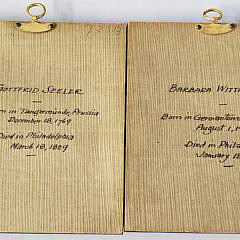 GOTTFRID SEELER
Born in Tangermunde, Prussia
December 18, 1769
Died in Philadelphia
March 18, 1829
BARBARA WITT
Born in Germantown
August 1, 1
Died in Phila
January 18